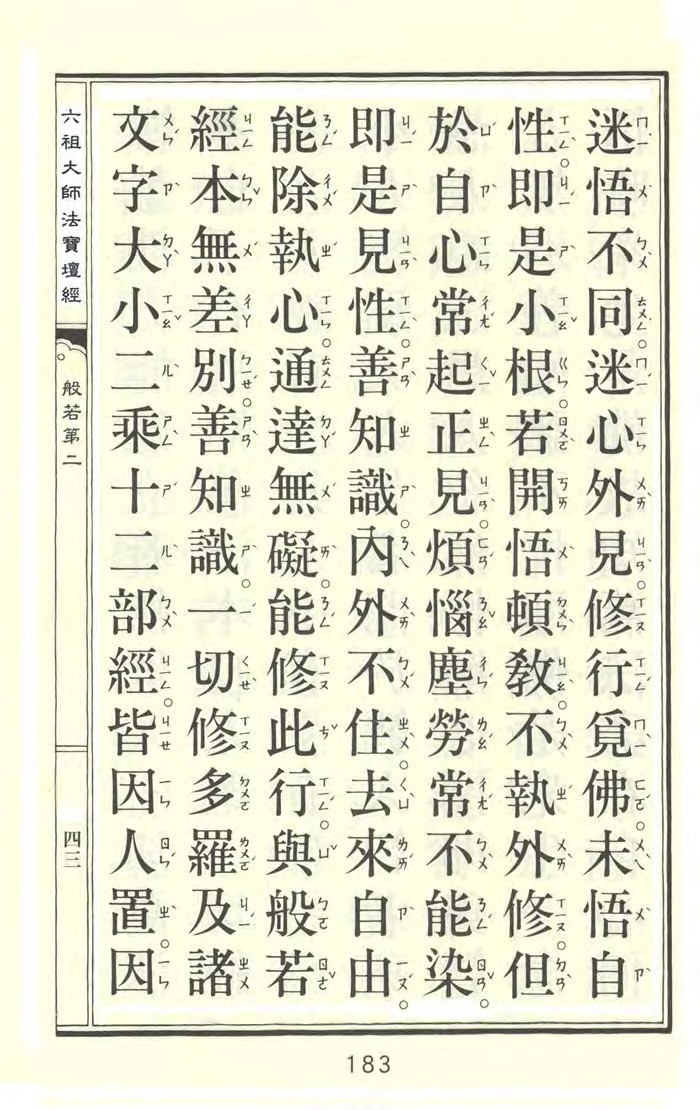 迷悟不同迷心外見。修行覓佛。未悟自
性。即是小根。若開悟頓教。不執外修。但
於自心常起正見。煩惱塵勞常不能染。
即是見性。善知識。內外不住。去來自由。
能除執心。通達無礙。能修此行。與般若
經本無差別。善知識。一切修多羅及諸
文字大小二乘十二部經。皆因人置。因
六祖大師法寶壇經
般若第二
四三
183